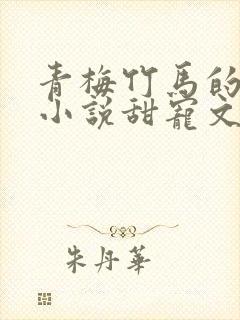 青梅竹馬的
小說甜寵文
朱丹華